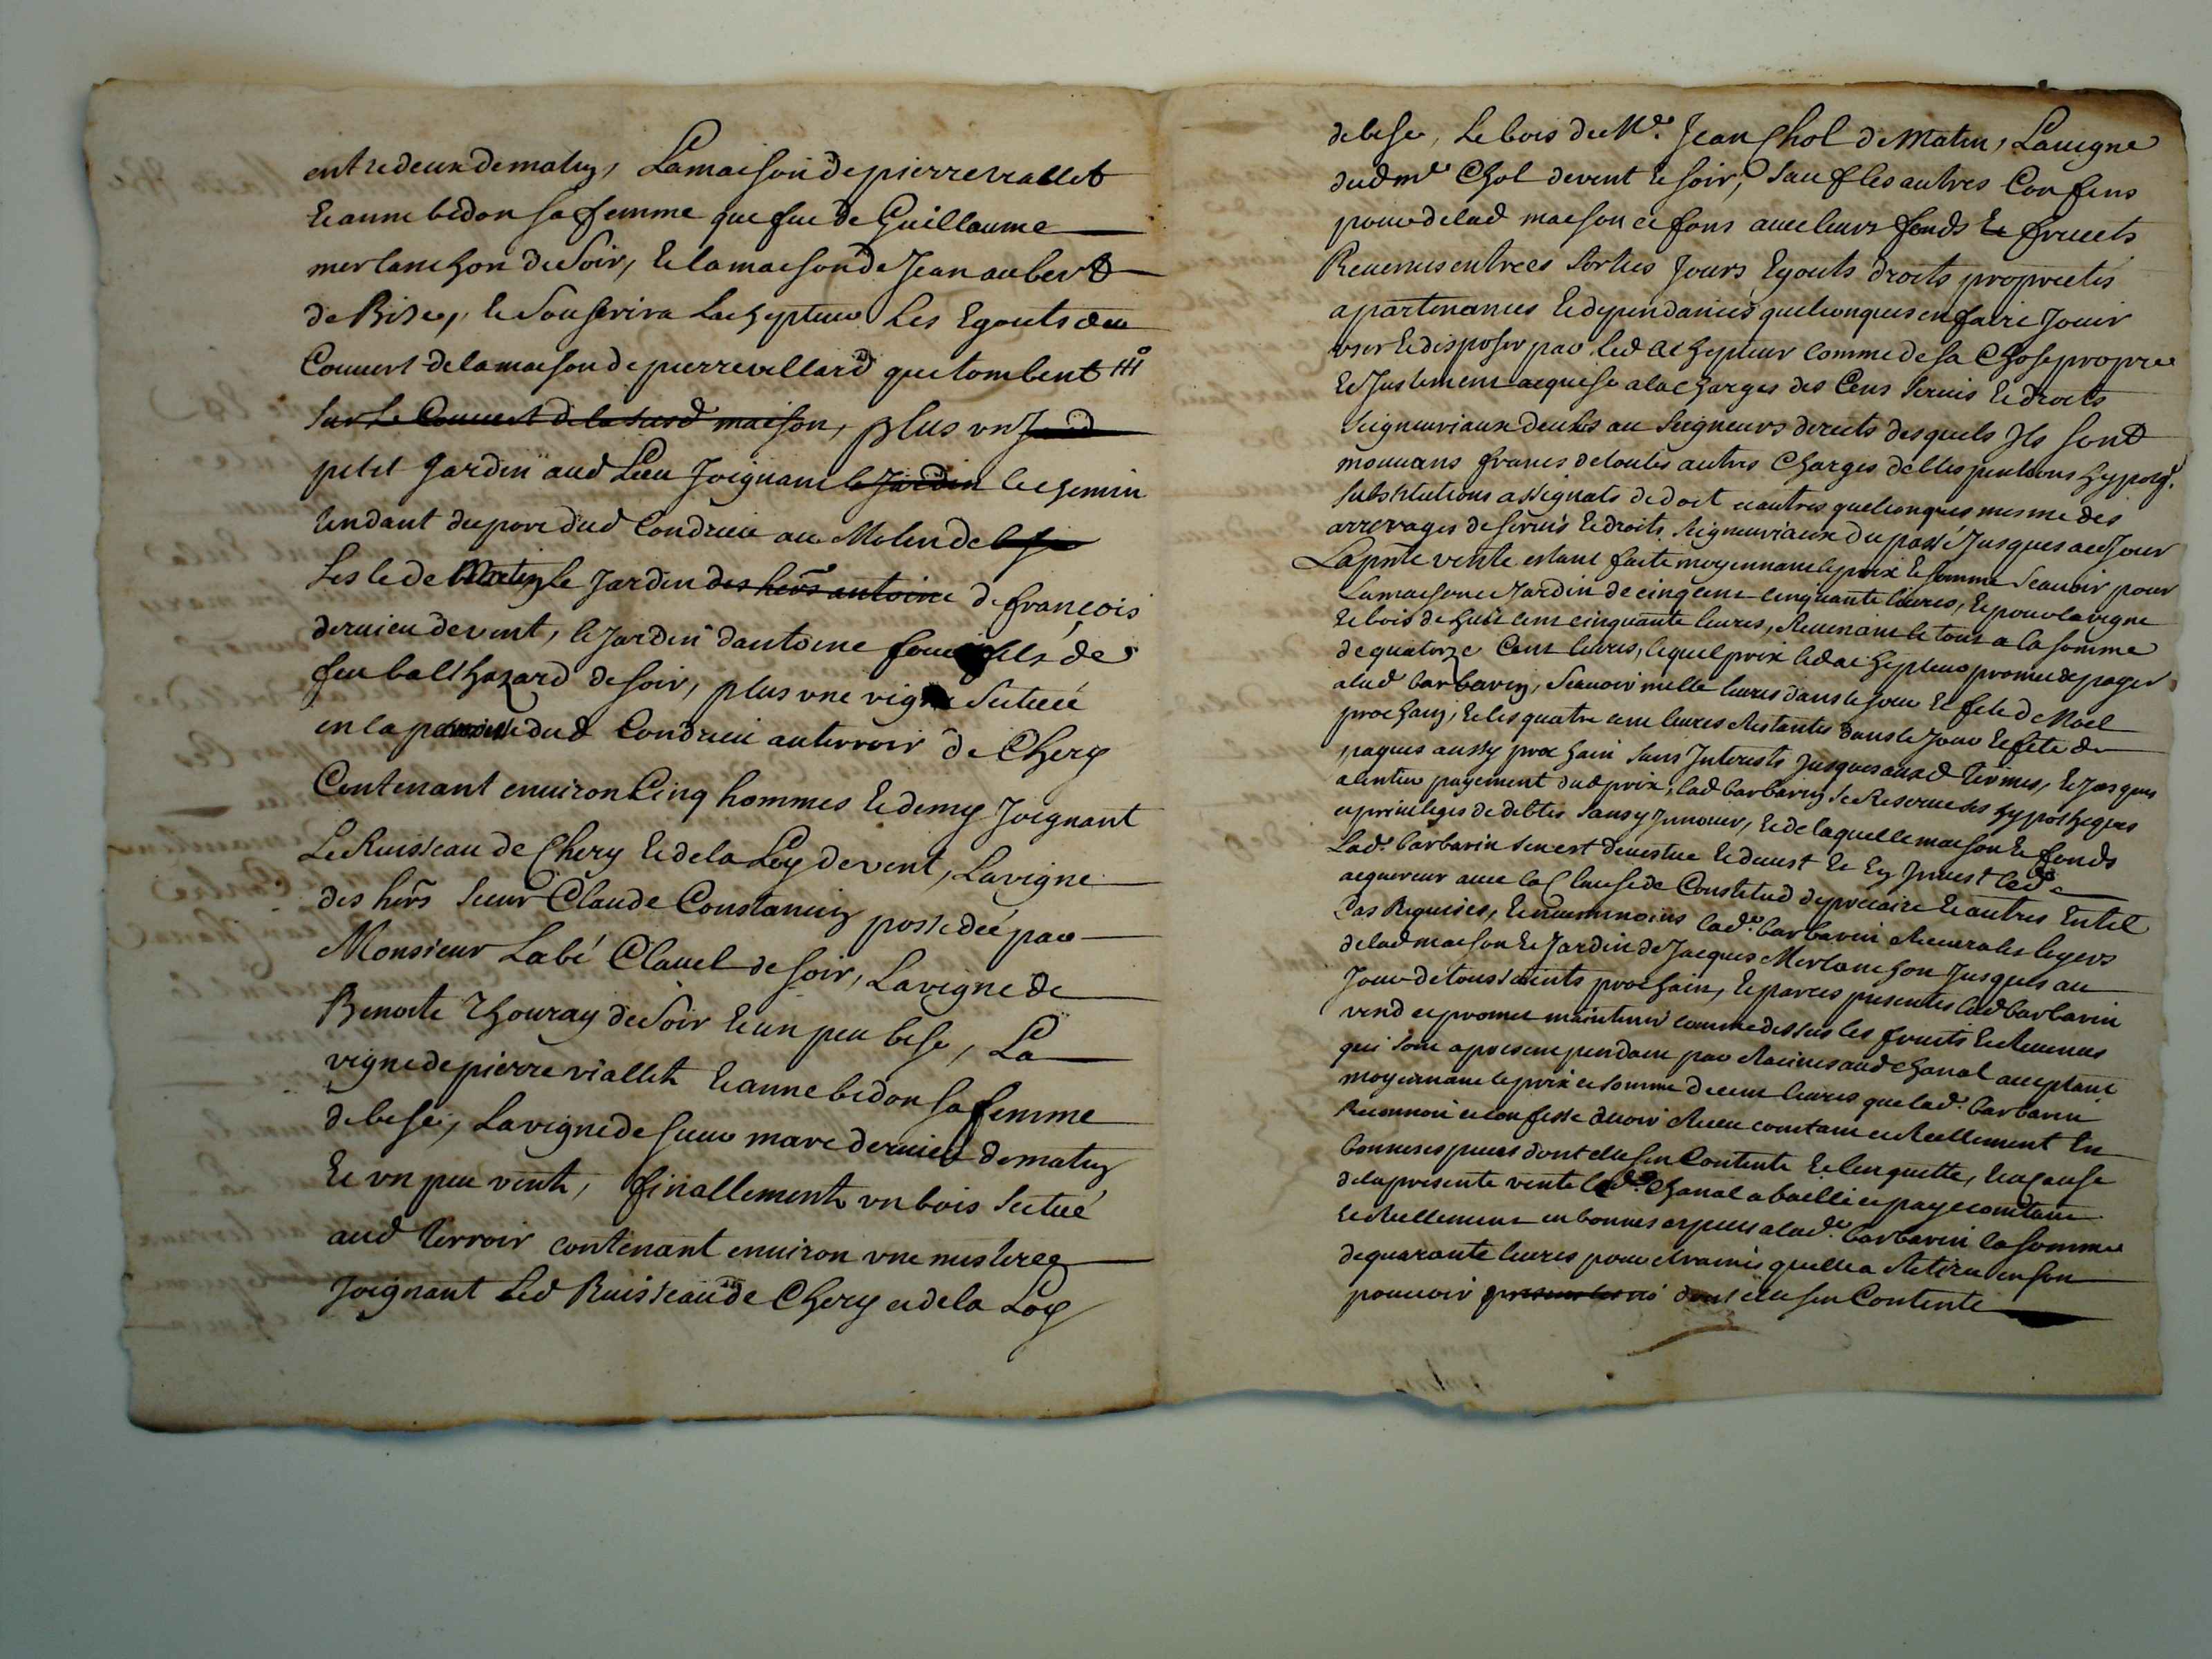 entredeux de matin, La maison de pierre viallet
Et anne bedon sa femme que fut de Guillaume
merlanchon de Soir, Et la maison de Jean aubert
de Bize, et soufrira Lachepteur Les Egouts du
Couvert de la maison de pierre villard qui tombent
sur Le Couvert de la susd maison, plus un Jard
petit Jardin aud Lieu Joignant le Jardin le chemin
tendant du port dud Condrieu au Molin de bise
Les le de Matin, le Jardin des hers antoine de françois
dernieu de vent, le Jardin dantoine fils de
feu balthazard de soir, plus une vigne Scituée
en la paroisse dud Condrieu au terroir de Chery
Contenant environ Cinq hommes Et demy Joignant
Le Ruisseau de Chery Et de la Loy de vent, La vigne
des hers sieur Claude Constancin possedée par
Monsieur Labé Clavel de soir, La vigne de
Benoite Thouray de Soir Et un peu bise, La
vigne de pierre viallet Et anne bedon sa femme
de bise, La vigne de sieur marc dernieu de matin
Et un peu vent, finallement un bois Scitué
aud terroir contenant environ une mesterée
Joignant Led Ruisseau de Chery et de la Loy
de bise, Le bois du Me. Jean Chol de Matin, La vigne
dud me Chol de vent et soir, Sauf les autres Confins
pour de lad maison et fons avec leurs fonds Et fruicts
Revenus entrées Sorties Jours Egouts droits proprietés
apartenances Et dependances quelconques en faire Jouir
user Et disposer par led achepteur Comme de sa Chose propre
Et Justement acquise a la charges des Cens servis Et droits
Seigneuriaux deubs au Seigneurs directs desquels Ils sont
mouvans francs de toutes autres Charges debtes pentions hypoq.
substitutions assignats de dot et autres quelconques mesme des
arrerages de servis Et droits seigneuriaux du passé Jusques aud Jour
La pnte vente estant faite moyennant le prix Et somme Scavoir pour
La maison et Jardin de cinq cent cinquante livres, Et pour la vigne
Et bois de huit cent cinquante livres, Revenant le tout a la somme
de quatorze Cent livres, lequel prix led achepteur promet de payer
a lad barbarin, Scavoir mille livres dans le Jour Et fete de Noel
prochain, Et les quatre cent livres Restantes dans le Jour Et fete de
paques aussy prochain sans Interests Jusques auxd termes, Et Jusques
a lentier payement dud prix, lad barbarin se Reserve ses hypotheques
et privileges de debtes sans y Innover, Et de laquelle maison Et fonds
Lad. barbarin sen est devestue Et devest Et En Invest led
acquereur avec la Clause de Constitud de precaire Et autres En tel
Cas Requises, Et neammoins lad. barbarin Recevra les loyers
de lad maison Et Jardin de Jacques Merlanchon Jusques au
Jour de toussaints prochain, Et par ces presentes lad barbarin
vend et promet maintenir comme dessus les fruits Et Revenus
qui sont a present pendant par Racines aud chanal acceptant
moyennant le prix et somme de cent livres que lad. barbarin
Reconnoi et confesse avoir Receu comtant et Reellement En
bonnes especes dont elle sen Contente Et len quitte, Et a cause
de la presente vente led. Chanal a baillé et payé comtant
Et Reellement en bonnes especes a lad. barbarin la somme
de quarante livres pour etrainé quelle a Retiré en son
pouvoir dont elle sen Contente